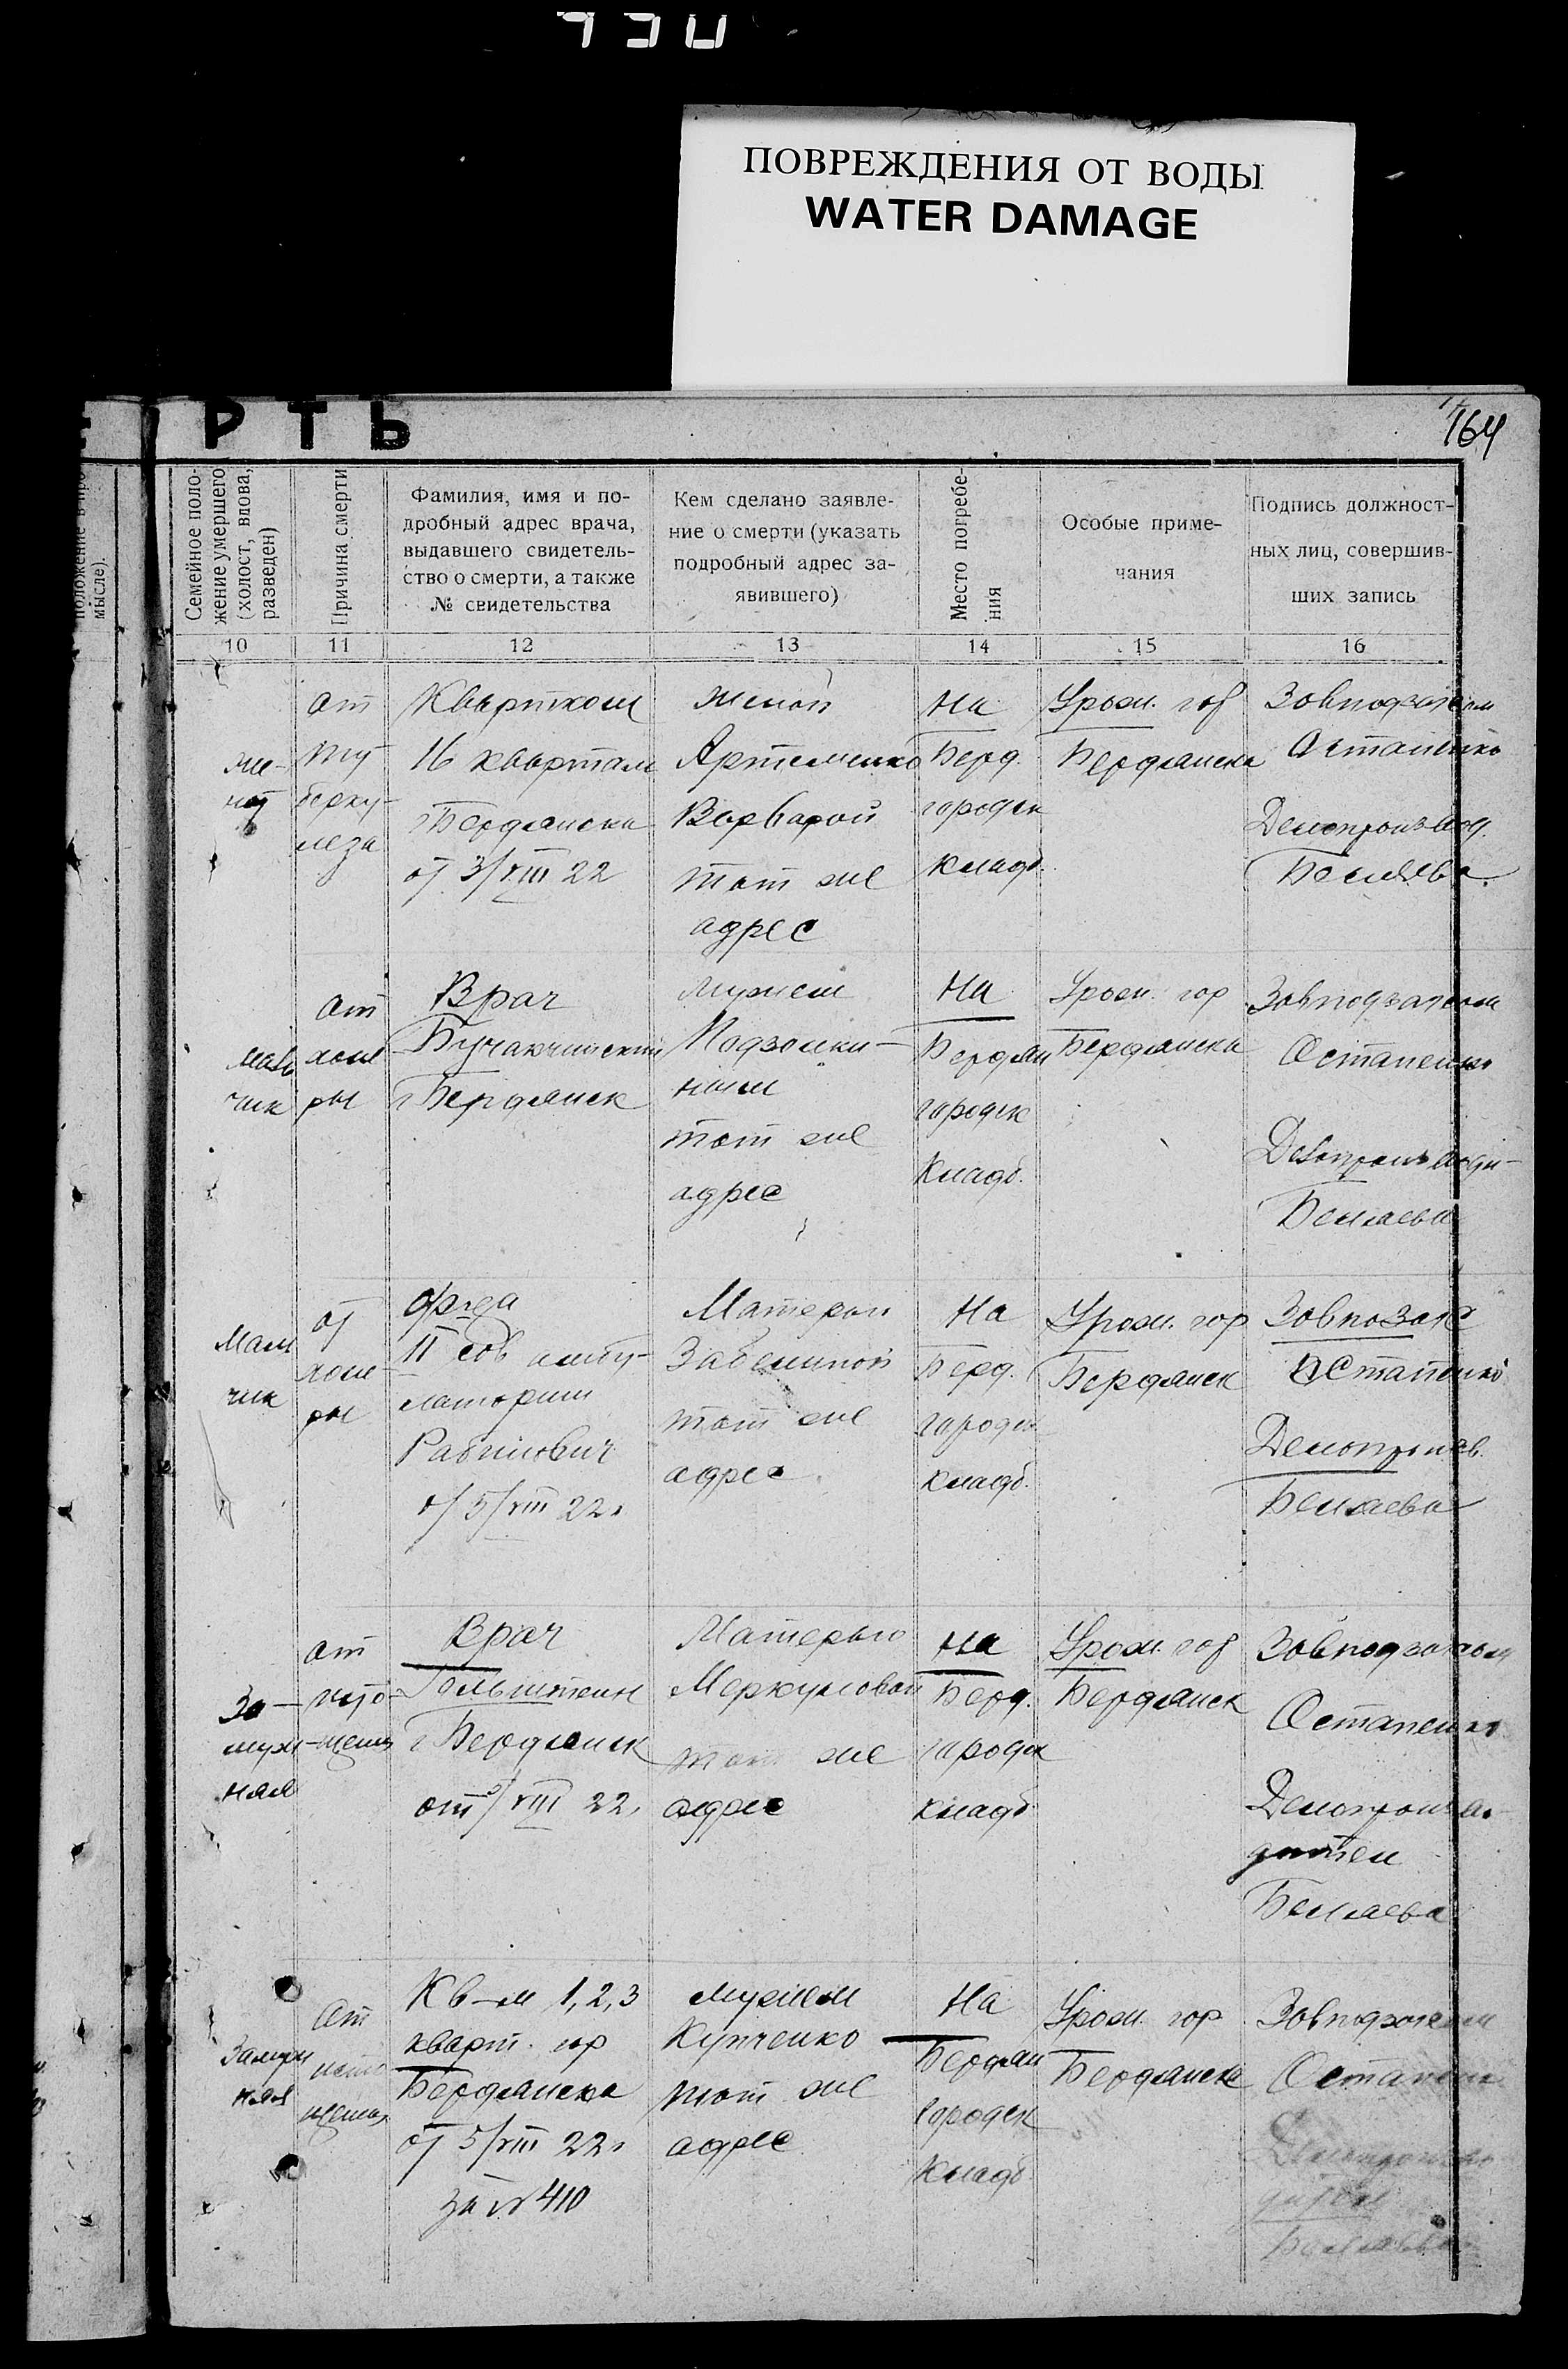 ПОВРЕЖДЕНИЯ ОТ ВОДЫ
WATER DAMAGE
РТЬ
164
положение в про
мысле).
Семейное поло-
жение умершего
(холост, вдова,
разведен)
Причина смерти
Фамилия, имя и по-
дробный адрес врача,
выдавшего свидетель-
ство о смерти, а также
№ свидетельства
Кем сделано заявле-
ние о смерти (указать
подробный адрес за-
явившего)
Место погребе-
ния
Особые приме-
чания
Подпись должност-
ных лиц, совершив-
ших запись
10
11
12
13
14
15
16
же-
нат
от
ту
берку-
леза
Квартком
16 квартал
г Бердянска
от 3/VIII 22
женой
Артеменко
Варварой
тот же
адрес
На
Берд.
городск
кладб.
Урож. гор
Бердянска
Завподзагсом
Остапенко
Делопроизвод.
Беляева
маль
чик
от
холе
ры
Врач
г Бердянск
мужем
тот же
адрес
На
Бердян
городск
Кладб.
Урож. гор
Бердянска
Завподзагсом
Остапенко
Делопроизводи-
Беляева
Мал
чик
от
холе-
ры
II сов амбу-
латории
Рабинович
от 5/VIII 22г
Матерью
Забелиной
тот же
адрес.
На
Берд.
городск
кладб.
Урож. гор
Бердянск
Остапенко
Делопроизв.
Беляева
За-
муж-
няя
от
исто-
щения
Врач
Гольдштейн
г Бердянск
от 5/VIII 22г
Матерью
Меркуловой
тот же
адрес
На
Берд.
городск
кладб
Урож. гор
Бердянск
Завподзагсом
Остапенко
Делопроизво-
дител
Беляева
Замуж
няя
От
исто
щения
Кв-м 1, 2, 3
кварт. гор
Бердянска
от 5/VIII 22г
за № 410
мужем
Купченко
тот же
адрес
На
Бердян
городск
Кладб
Урож. гор
Бердянска
Завподзагсом
Остапенко
Беляева